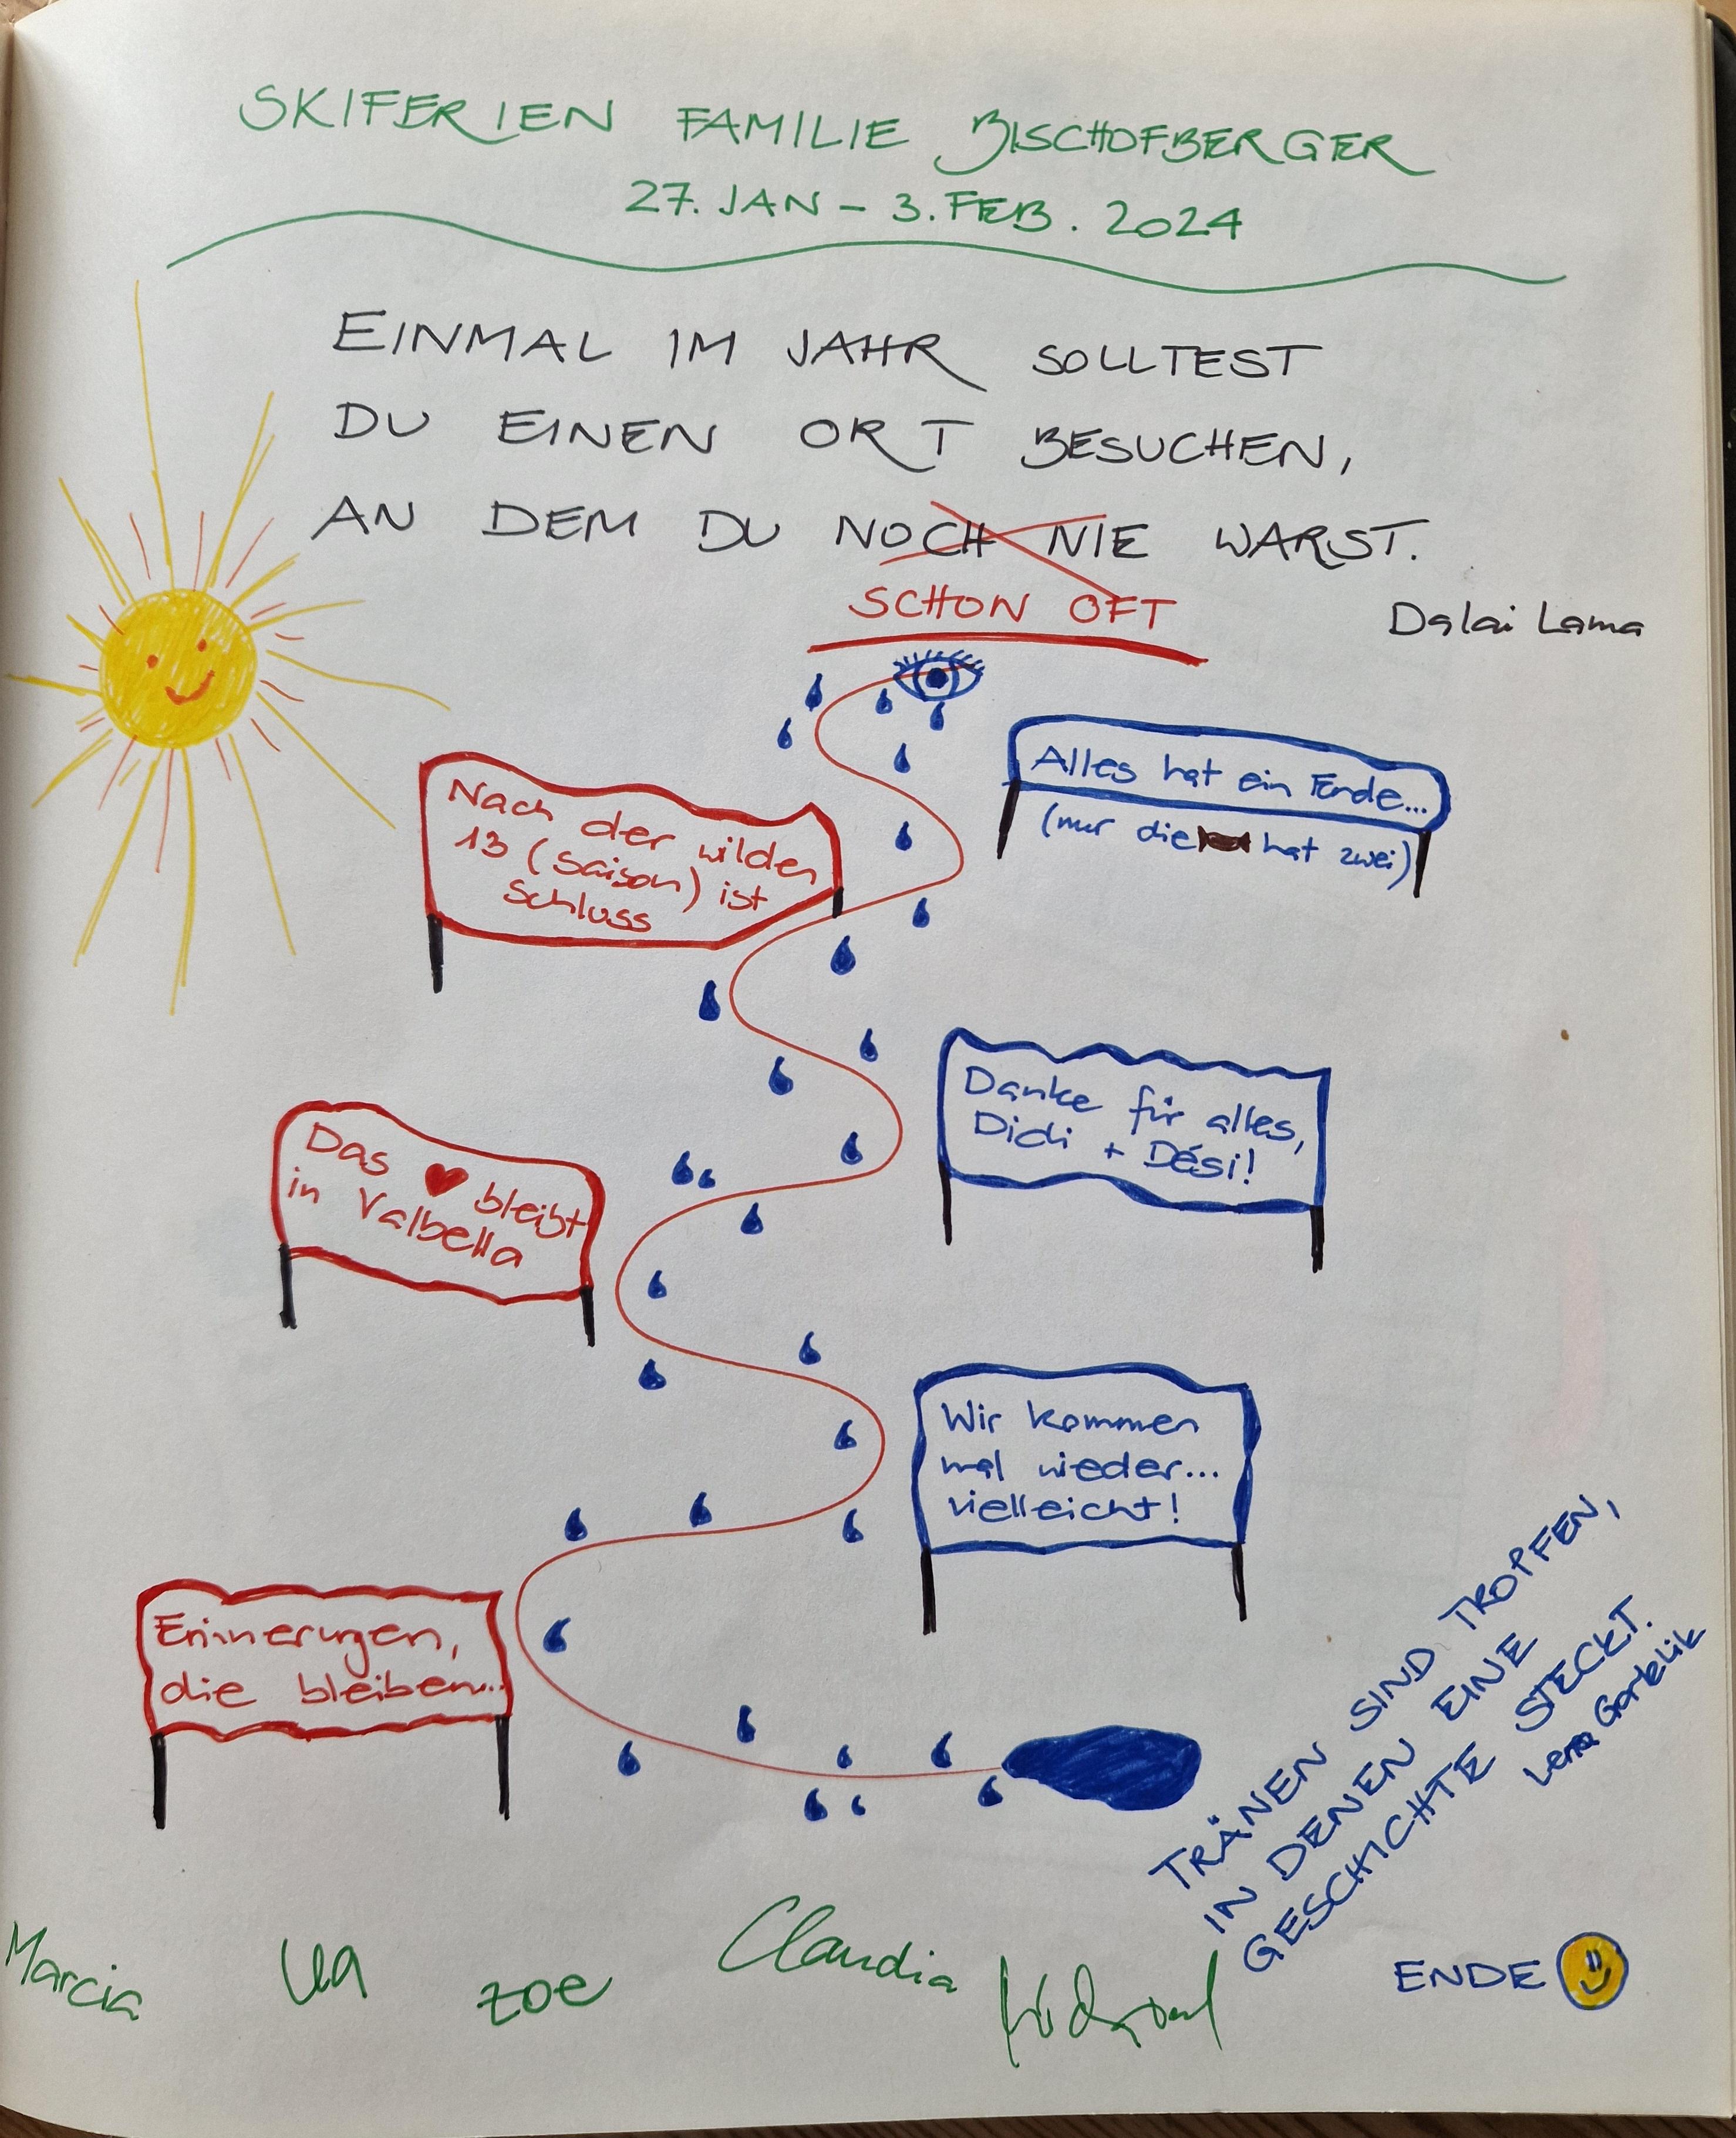 SKIFERIEN FAMILIE BISCHOFBERGER
27. JAN – 3. FEB. 2024
EINMAL IM JAHR SOLLTEST
DU EINEN ORT BESUCHEN,
AN DEM DU NOCH NIE WARST.
SCHON OFT
Dalai Lama
Alles hat ein Ende...
(nur die hat zwei)
Nach der wilden
13 (Saison) ist
Schluss
Danke für alles,
Didi + Dési!
Das ♥ bleibt
in Valbella
Wir kommen
mal wieder...
vielleicht!
Erinnerungen,
die bleiben...
TRÄNEN SIND TROPFEN,
IN DENEN EINE
GESCHICHTE STECKT.
Lena Gorelik
Marcia
Zoe
Claudia
ENDE